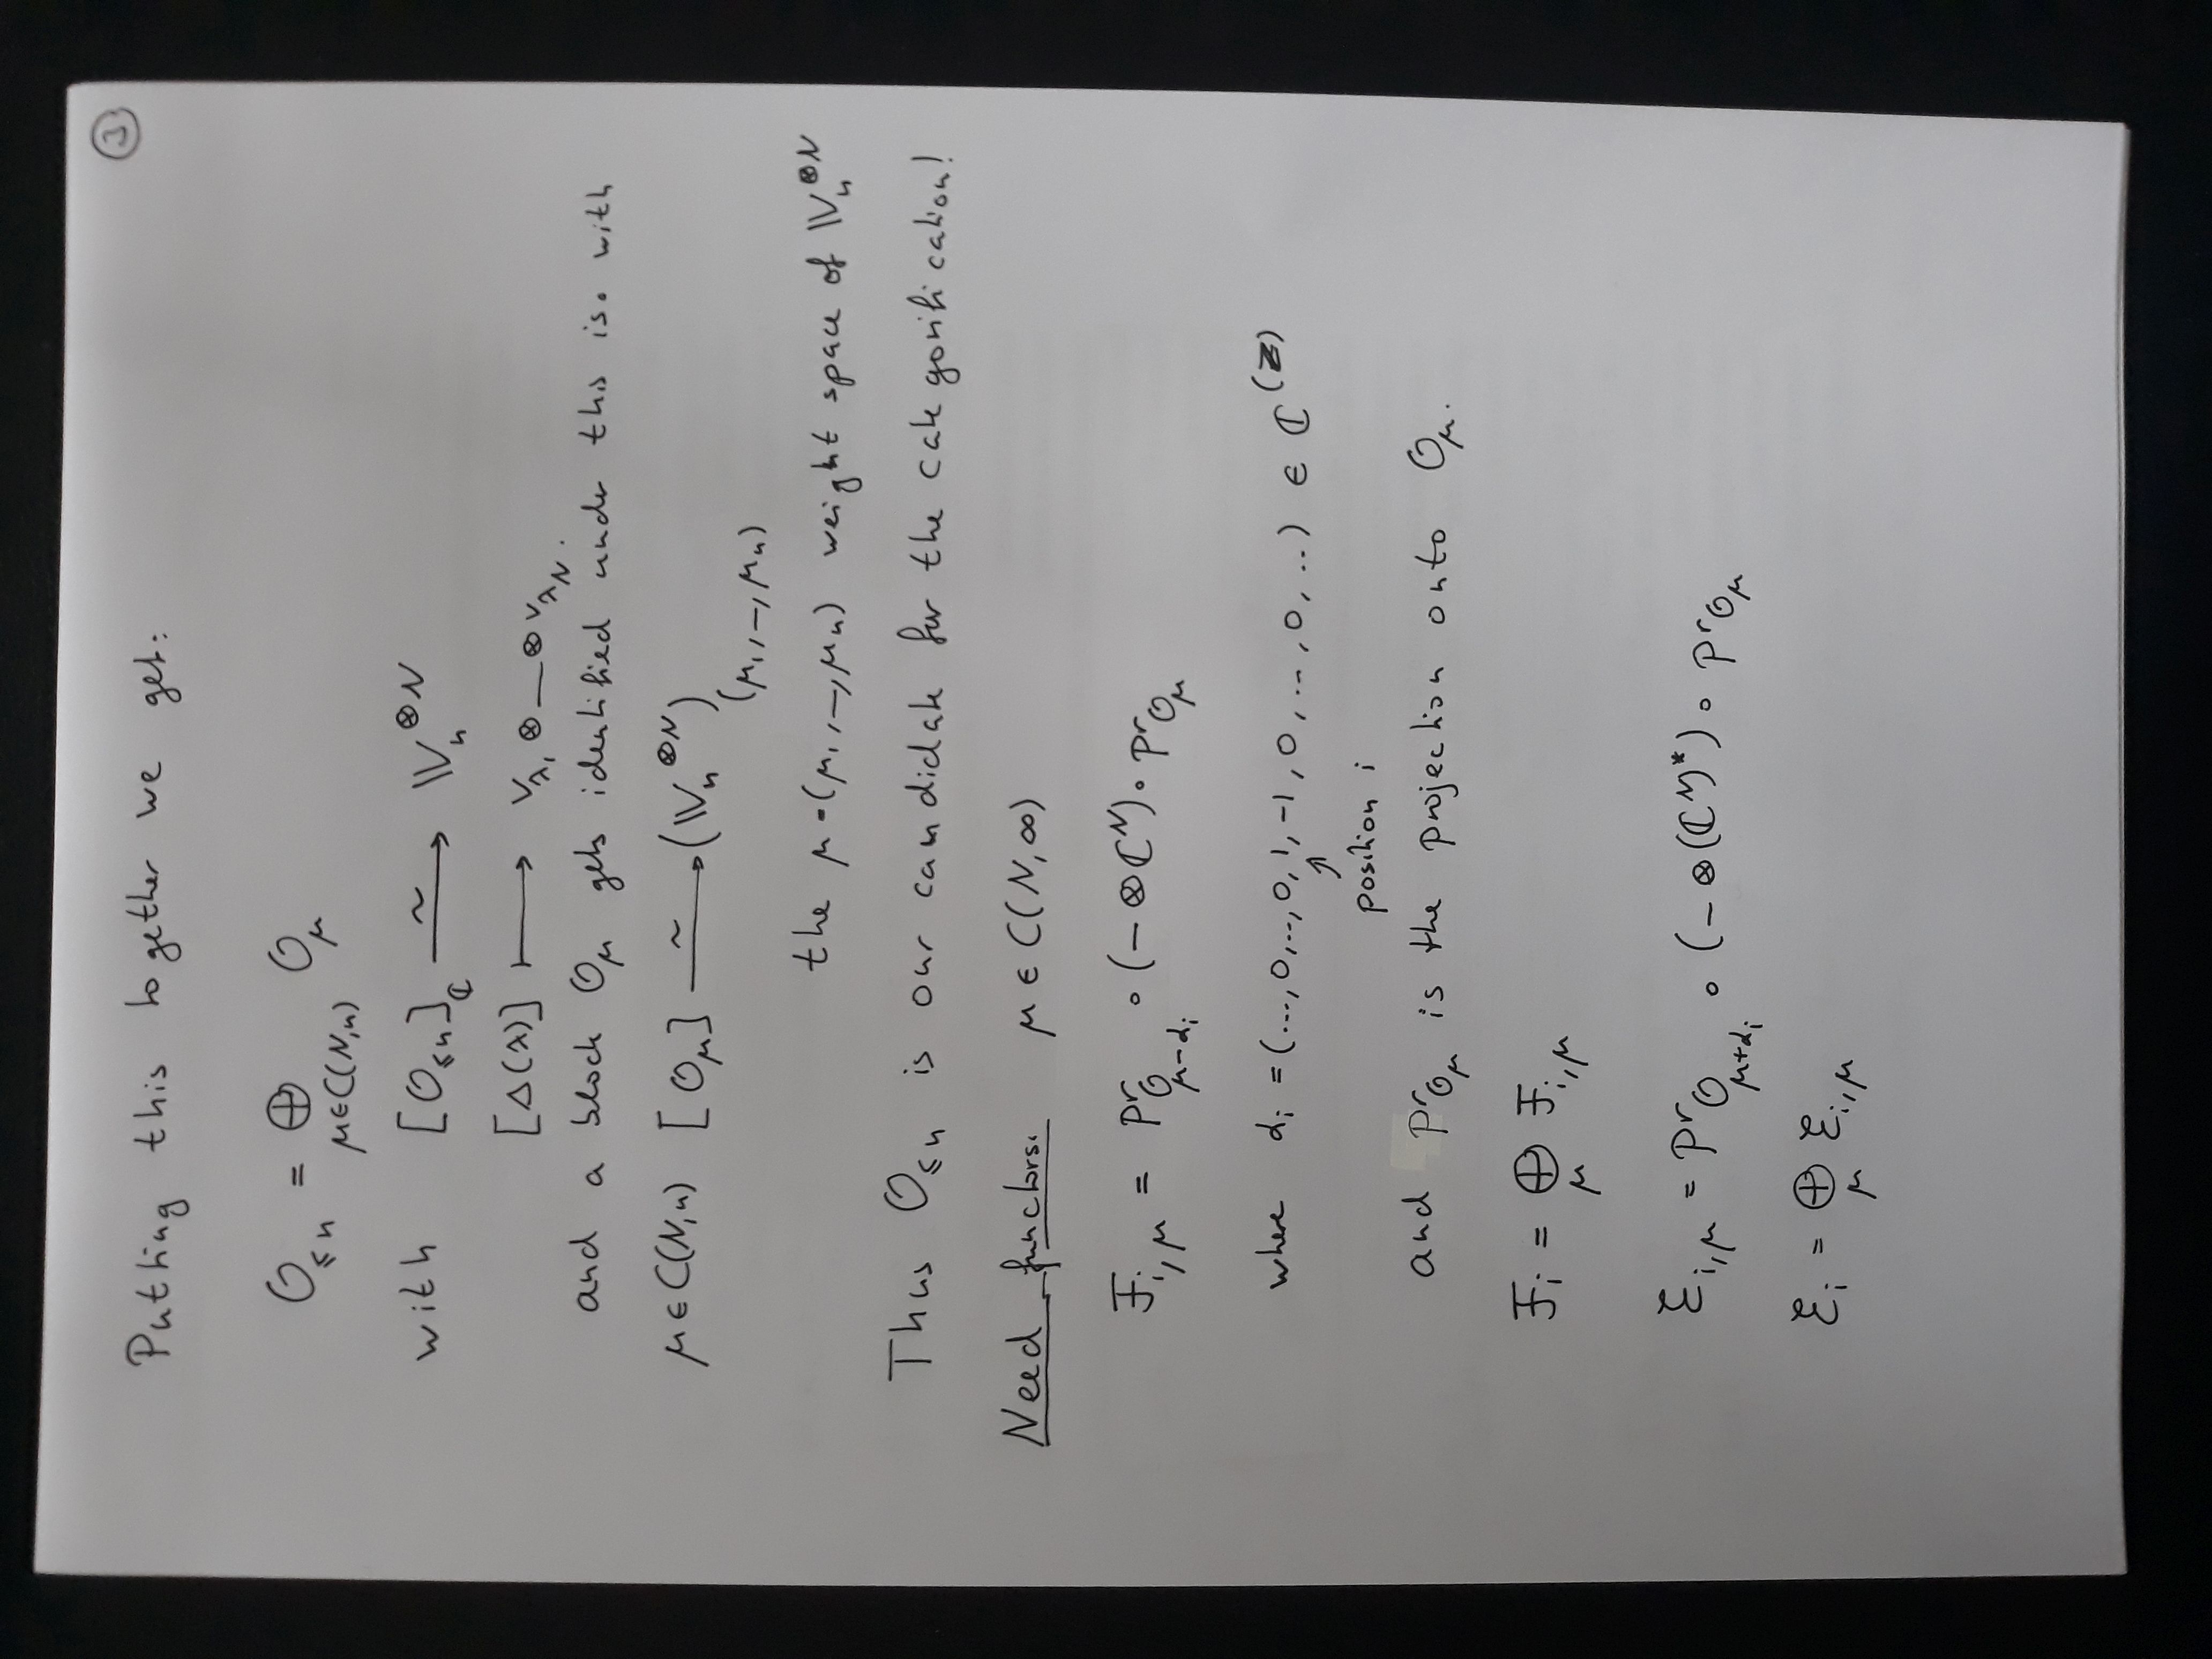 ③
Putting this together we get:
𝒪_{≤n} = ⊕_{μ∈C(N,n)} 𝒪_μ
with [𝒪_{≤n}]_ℂ ⟶^{~} 𝕍_n^{⊗N}
[Δ(λ)] ⟼ v_{λ_1} ⊗ — ⊗ v_{λ_N}.
and a block 𝒪_μ gets identified under this iso with
μ∈C(N,n) [𝒪_μ] ⟶^{~} (𝕍_n^{⊗N})_{(μ_1,—,μ_n)}
the μ=(μ_1,—,μ_n) weight space of 𝕍_n^{⊗N}
Thus 𝒪_{≤n} is our candidate for the categorification!
Need functors: μ ∈ C(N,∞)
ℱ_{i,μ} = pr_{𝒪_{μ-α_i}} ∘ (−⊗ℂ^N) ∘ pr_{𝒪_μ}
where α_i = (...,0,..,0,1,-1,0,...,0,..) ∈ ℂ^{(ℤ)}
↑
position i
and pr_{𝒪_μ} is the projection onto 𝒪_μ.
ℱ_i = ⊕_μ ℱ_{i,μ}
ℰ_{i,μ} = pr_{𝒪_{μ+α_i}} ∘ (−⊗(ℂ^N)^*) ∘ pr_{𝒪_μ}
ℰ_i = ⊕_μ ℰ_{i,μ}